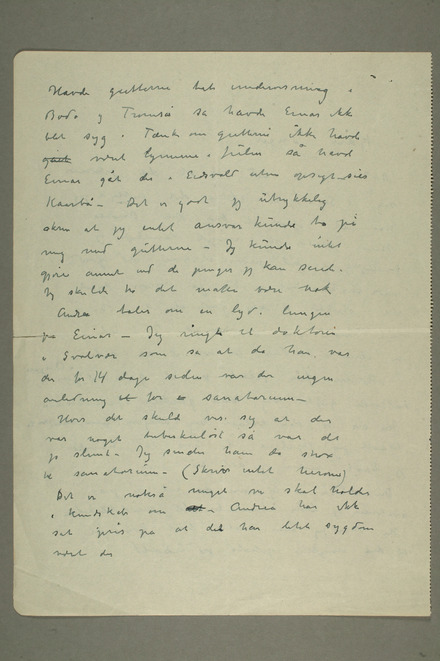 Havde gutterne talt undervisning i
Bodø og Tromsø så havde Einar ikke
blit syg. Tænk om guttene ikke havde
været hjemme i julen så havde
Einar gåt der i Eidsvold uten opsyt - sies
Det er godt jeg utrykkelig
skrev at jeg intet ansvar kunde ta på
mig med gutterne - Jeg kunde intet
gjøre annet end de penger jeg kan sende.
Jeg skulde ha det maten være nok
Andrea taler om en lyd i lungen
på Einar - Jeg ringte til doktoren
i Svolvær som sa at da han var
der for 14 dage siden var der ingen
anledning for sanatorium -
Hvis det skulde vise sig at der
var noget tuberkuløst så var det
jo slemt - Jeg sender ham da strax
til sanatorium - (Skriv intet herom)
Det er også meget vi skal holdes
i kundskab om - Andrea har ikke
sat pris på at det har blit sygdom
været der